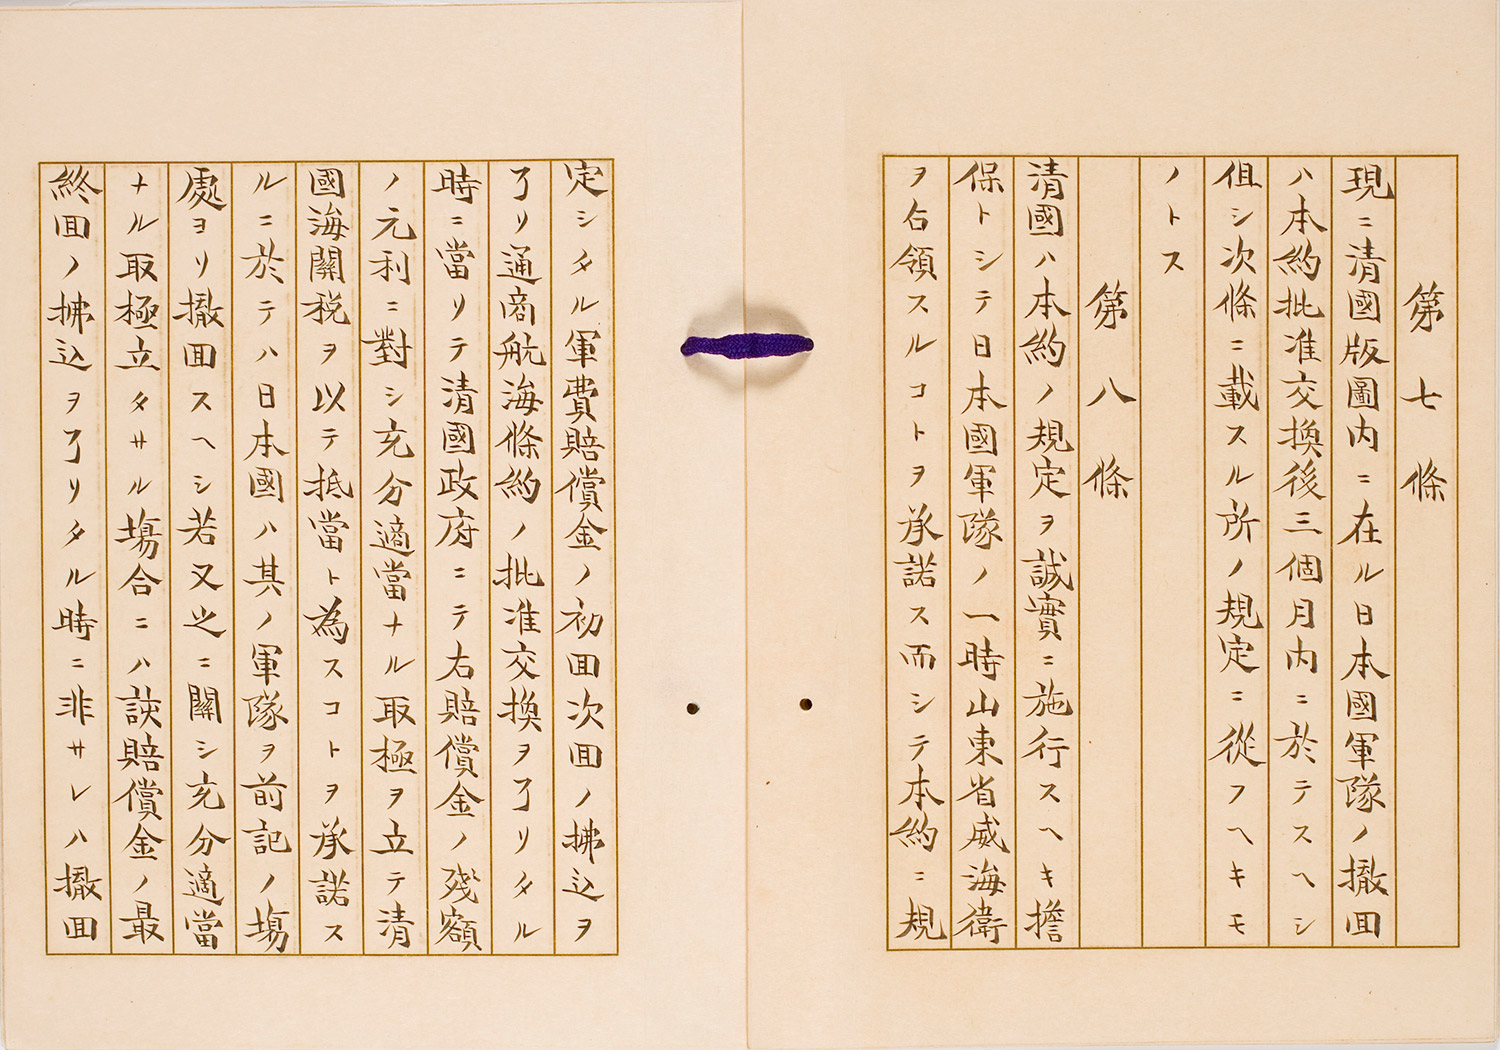 第七條
現ニ清國版圖内ニ在ル日本國軍隊ノ撤回
ハ本約批准交換後三個月内ニ於テスヘシ
但シ次條ニ載スル所ノ規定ニ從フヘキモ
ノトス
第八條
清國ハ本約ノ規定ヲ誠實ニ施行スヘキ擔
保トシテ日本國軍隊ノ一時山東省威海衛
ヲ占領スルコトヲ承諾ス而シテ本約ニ規
定シタル軍費賠償金ノ初回次回ノ拂込ヲ
了リ通商航海條約ノ批准交換ヲ了リタル
時ニ當リテ清國政府ニテ右賠償金ノ殘額
ノ元利ニ對シ充分適當ナル取極ヲ立テ清
國海關税ヲ以テ抵當ト為スコトヲ承諾ス
ルニ於テハ日本國ハ其ノ軍隊ヲ前記ノ場
處ヨリ撤回スヘシ若又之ニ關シ充分適當
ナル取極立タサル塲合ニハ該賠償金ノ最
終回ノ拂込ヲ了リタル時ニ非サレハ撤回